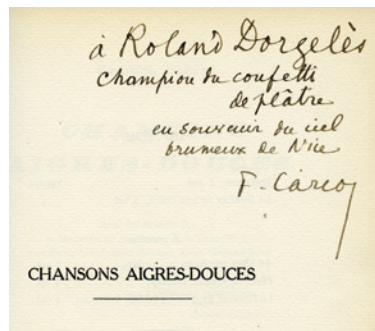 à Roland Dorgelès
champion du confetti
de plâtre
en souvenir du ciel
brumeux de Nice
F. Carco
CHANSONS AIGRES-DOUCES